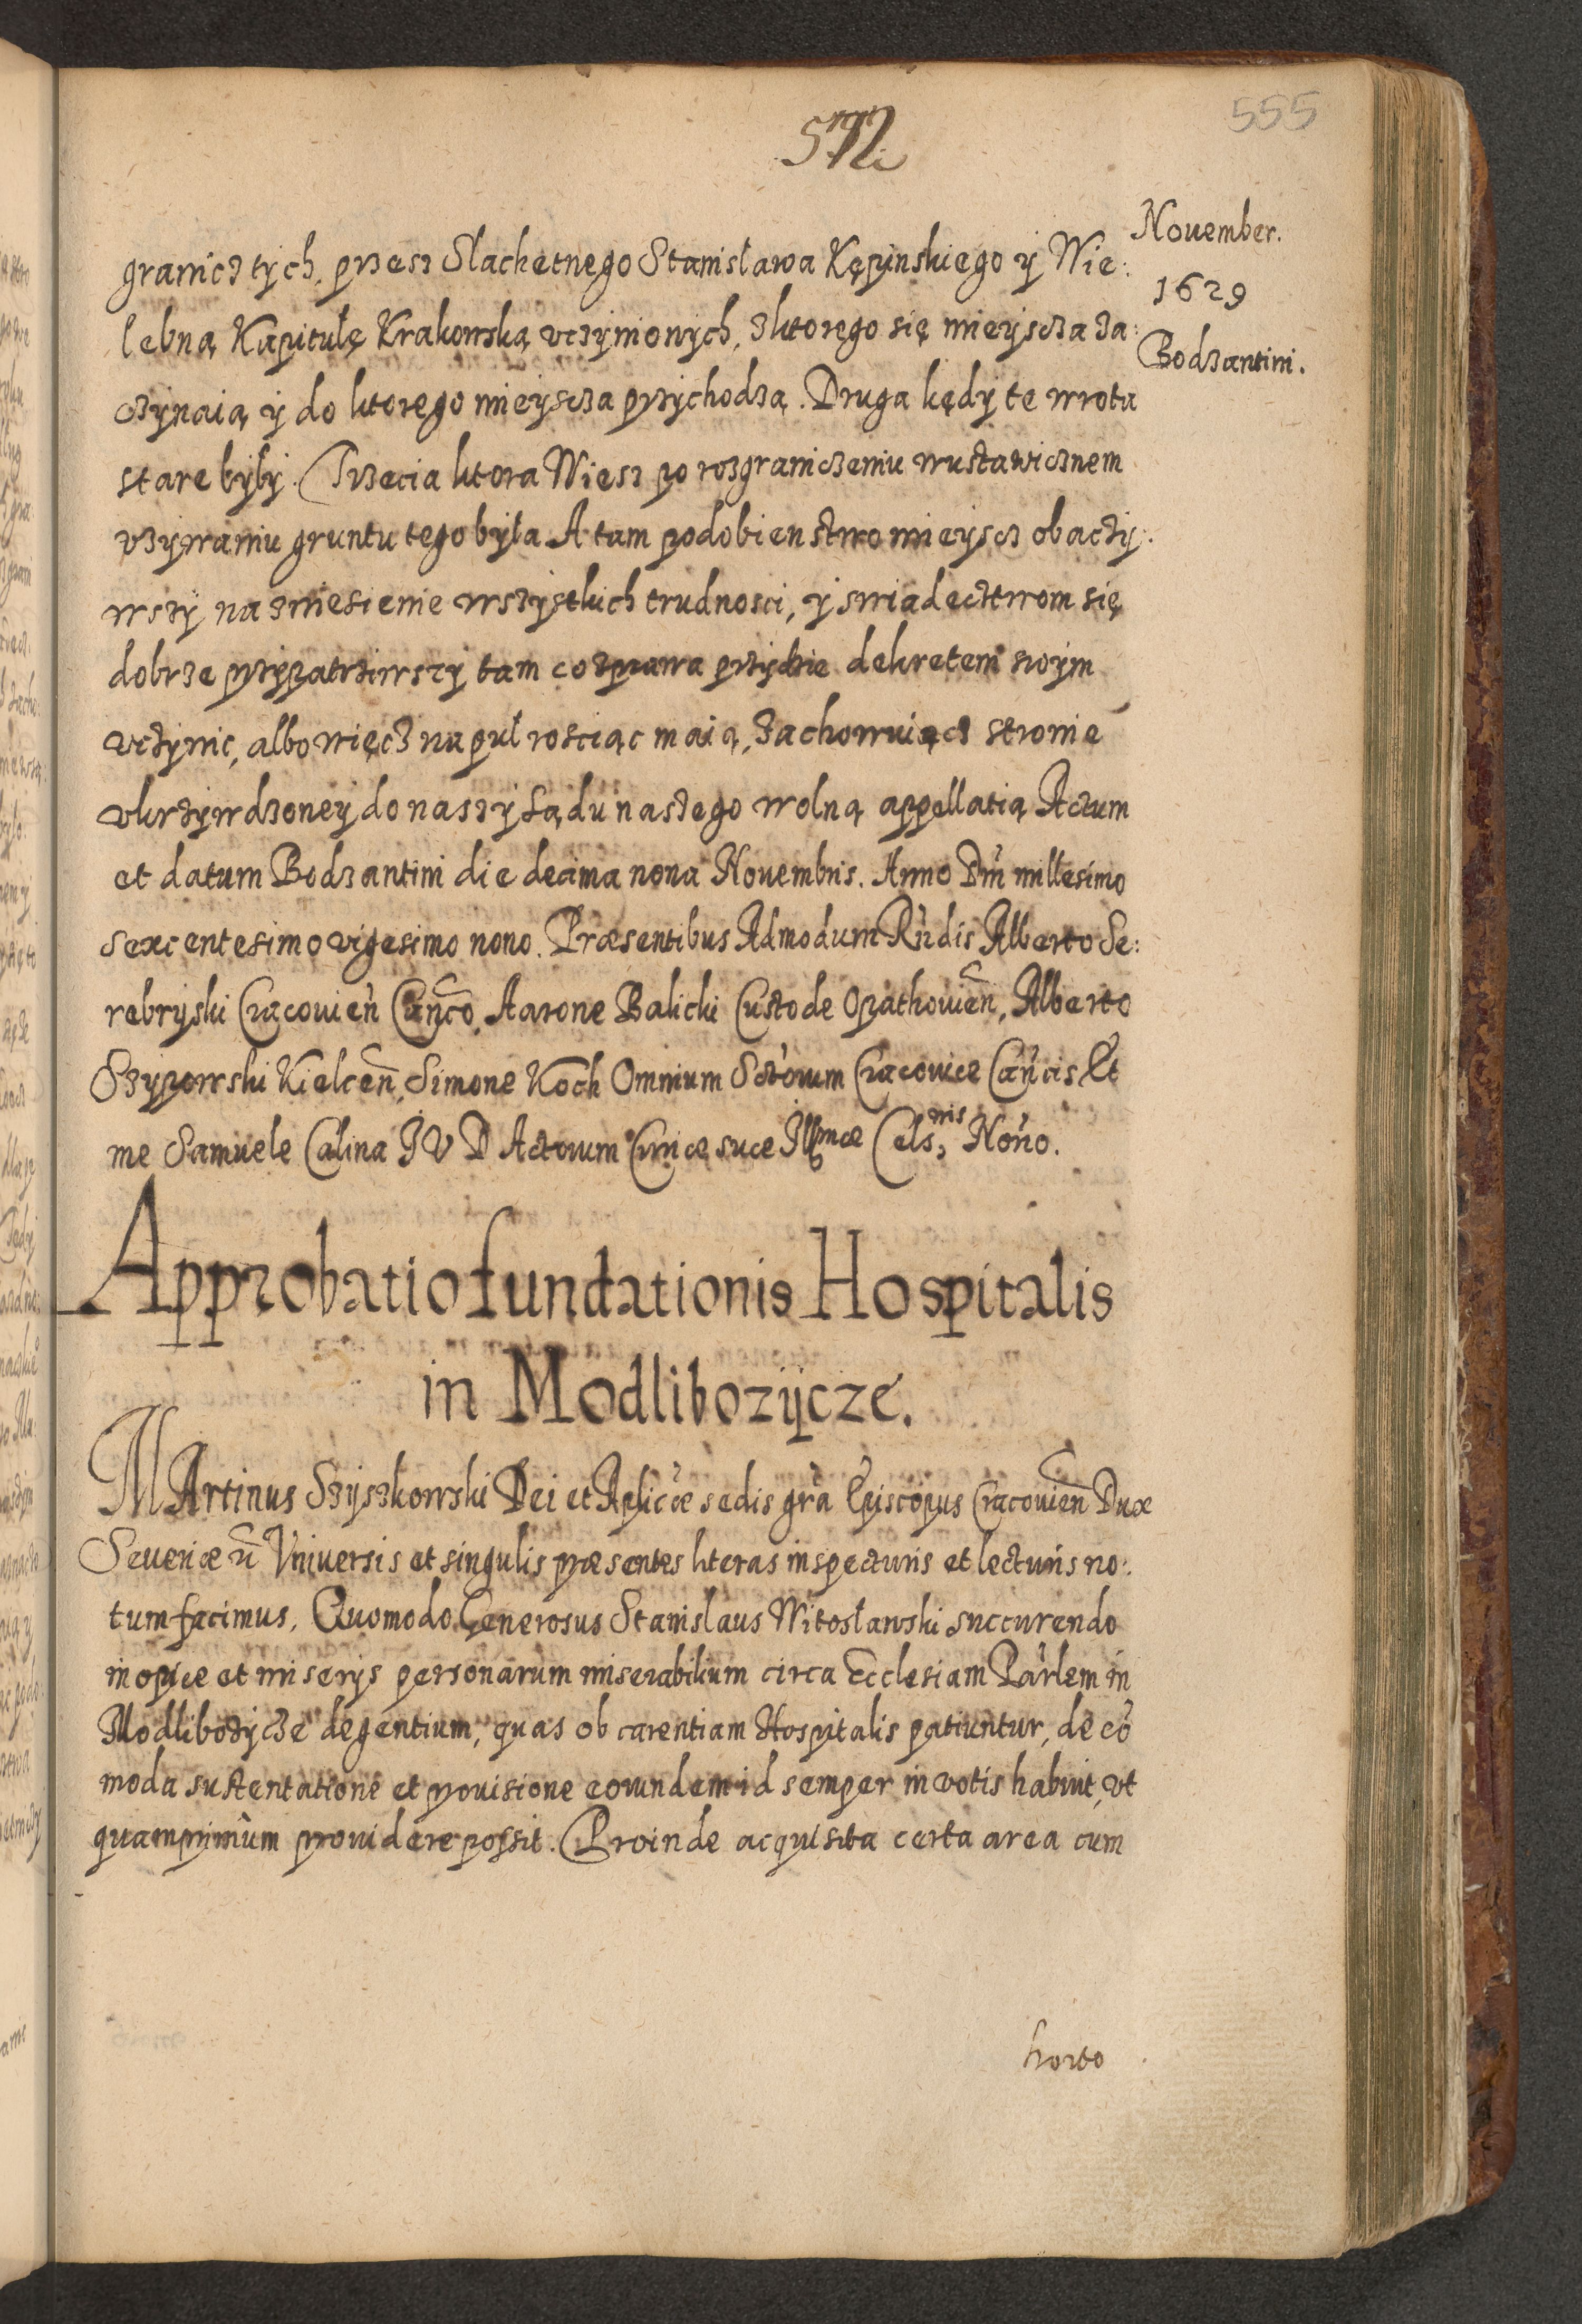 555
572
November.
1629
Bodzantini.
granicz tÿch, przesz Slachetnego Stanisława Kępinskiego ÿ Wie:
lebną Kapitułę Krakowską vczÿnionÿch, z ktorego się mieÿscza za:
czÿnaią ÿ do ktorego mieÿscza przÿchodzą. Druga kędÿ te wrota
stare bÿłÿ. Trzecia ktora Wiesz po rozgraniczeniu wustawicznem
vzÿwaniu gruntu tego bÿła. A tam podobienstwo mieÿscz obaczÿ:
wszÿ na zniesienie wszÿstkich trudnosci, ÿ swiadecztwom się
dobrze przÿpatrziwszÿ tam co zprawa przÿdzie dekretem swoÿm
vczÿnic, albo więcz na puł rosciąc maią, zachowuiącz stronie
vkrzÿwdzoneÿ do naszÿ Sądu naszego wolną appellatią Actum
et datum Bodzantini die decima nona Nouembris. Anno Dni millesimo
sexcentesimo vigesimo nono. Præsentibus Admodum Rndis Alberto Se:
rebryski Cracouien Canco, Aarone Balicki Custode Opathouien, Alberto
Szÿpowski Kielcen, Simone Koch Omnium Sctorum Cracouiæ Cancis Et
me Samuele Calina J V D Actorum Curiæ suæ Illmæ Cels: nis Noño.
Approbatio fundationis Hospitalis
in Modlibozÿcze.
MArtinus Szÿszkowski Dei et Aplicæ sedis gra Episcopus Cracouien Dux
Seueriæ Vniuersis et singulis præsentes literas inspecturis et lecturis no:
tum facimus, Quomodo Generosus Stanislaus Witosławski succurendo
inopiæ et miserijs personarum miserabilium circa Ecclesiam Parlem in
Modlibozÿcze degentium, quas ob carentiam Hospitalis patiuntur, de co
moda sustentatione et prouisione eorundem id semper in votis habuit, vt
quamprimùm prouidere possit. Proinde acquisita certa area cum
horto